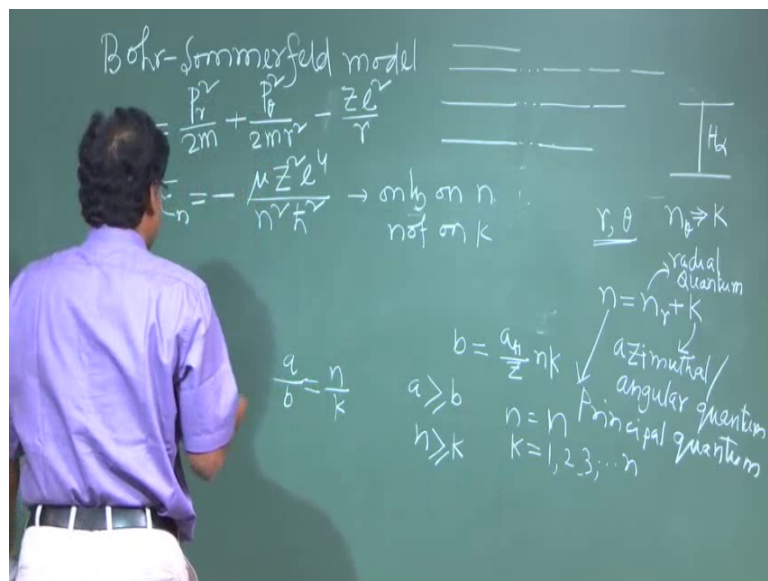 Bohr-Sommerfeld model
= Pr²/2m + Pθ²/2mr² - Ze²/r
En = - μZ²e⁴/n²ħ² → only on n
not on k
Hα
r, θ nθ ⇒ k
radial
Quantum
n = nr + k
azimuthal
angular quantum
Principal quantum
a/b = n/k
b = a_H/Z nk
a ≥ b
n ≥ k
n = n
k = 1, 2, 3, ... n